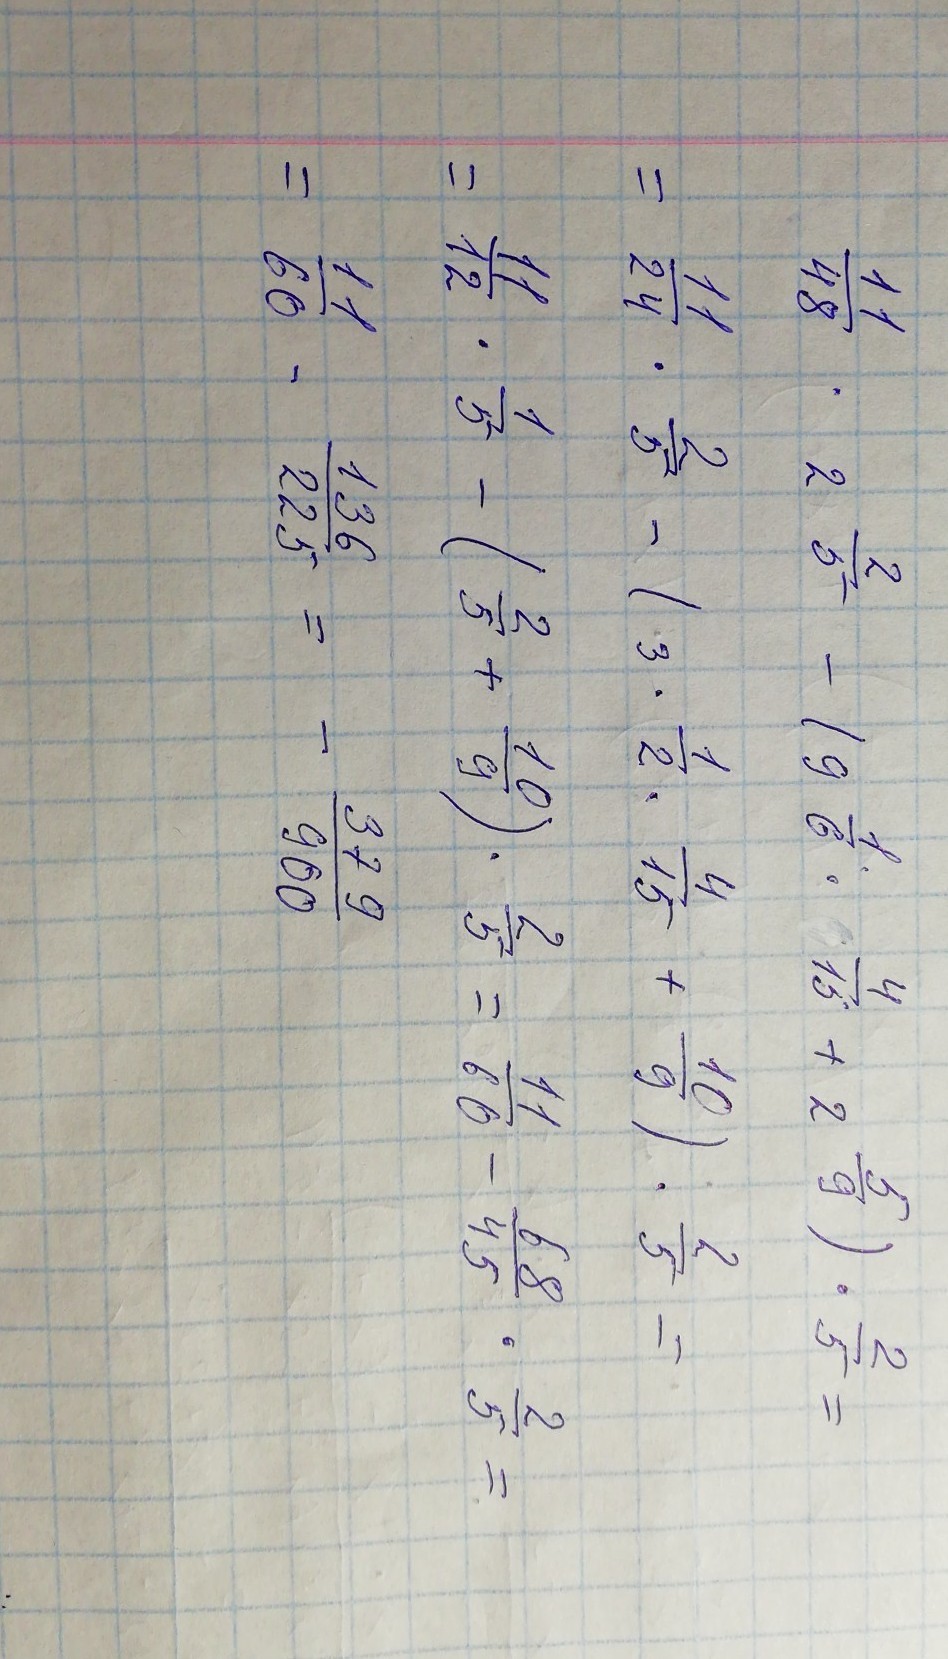 11/48 · 2 2/5 - (9 1/6 · 4/15 + 2 5/9) · 2/5 =
= 11/24 · 2/5 - (3 · 1/2 · 4/15 + 10/9) · 2/5 =
= 11/12 · 1/5 - (2/5 + 10/9) · 2/5 = 11/60 - 68/45 · 2/5 =
= 11/60 - 136/225 = - 379/900